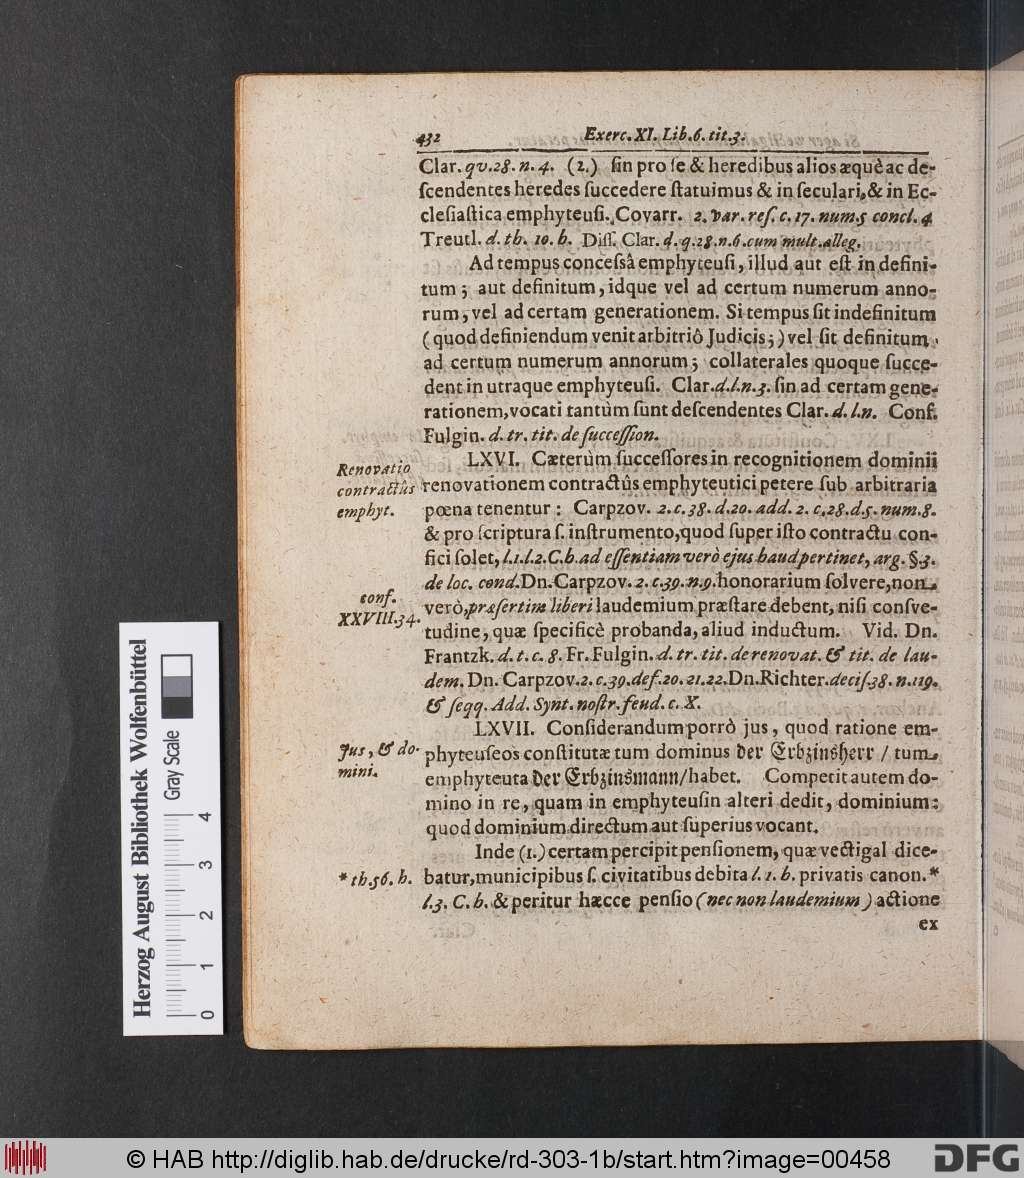 432 Exerc. XI. Lib. 6. tit. 3.
Clar. qv. 28. n. 4. (2.) ſin pro ſe & heredibus alios æquè ac de-
ſcendentes heredes ſuccedere ſtatuimus & in ſeculari, & in Ec-
cleſiaſtica emphyteuſi. Covarr. 2. var. reſ. c. 17. num. 5 concl. 4
Treutl. d. th. 10. h. Diſſ. Clar. d. q. 28. n. 6. cum mult. alleg.
Ad tempus conceſsâ emphyteuſi, illud aut eſt in defini-
tum; aut definitum, idque vel ad certum numerum anno-
rum, vel ad certam generationem. Si tempus ſit indefinitum
(quod definiendum venit arbitriô Judicis;) vel ſit definitum
ad certum numerum annorum; collaterales quoque ſucce-
dent in utraque emphyteuſi. Clar. d. l. n. 3. ſin ad certam gene-
rationem, vocati tantùm ſunt deſcendentes Clar. d. l. n. Conf.
Fulgin. d. tr. tit. de ſucceſſion.
Renovatio
contractûs
emphyt.
LXVI. Cæterùm ſucceſſores in recognitionem dominii
renovationem contractûs emphyteutici petere ſub arbitraria
pœna tenentur: Carpzov. 2. c. 38. d. 20. add. 2. c. 28. d. 5. num. 8.
& pro ſcriptura ſ. inſtrumento, quod ſuper iſto contractu con-
fici ſolet, l. 1. l. 2. C. h. ad eſſentiam verò ejus haud pertinet, arg. §. 3.
de loc. cond. Dn. Carpzov. 2. c. 39. n. 9. honorarium ſolvere, non
conf.
XXVIII. 34.
verò, præſertim liberi laudemium præſtare debent, niſi conſve-
tudine, quæ ſpecificè probanda, aliud inductum. Vid. Dn.
Frantzk. d. t. c. 8. Fr. Fulgin. d. tr. tit. de renovat. & tit. de lau-
dem. Dn. Carpzov. 2. c. 39. def. 20. 21. 22. Dn. Richter. deciſ. 38. n. 119.
& ſeqq. Add. Synt. noſtr. feud. c. X.
Jus, & do-
mini.
LXVII. Conſiderandum porrò jus, quod ratione em-
phyteuſeos conſtitutæ tum dominus der Erbzinsherr / tum
emphyteuta der Erbzinsmann / habet. Competit autem do-
mino in re, quam in emphyteuſin alteri dedit, dominium:
quod dominium directum aut ſuperius vocant.
Inde (1.) certam percipit penſionem, quæ vectigal dice-
* th. 56. h.
batur, municipibus ſ. civitatibus debita l. 1. h. privatis canon. *
l. 3. C. h. & peritur hæcce penſio (nec non laudemium) actione
ex
Herzog August Bibliothek Wolfenbüttel
Gray Scale
0 1 2 3 4
© HAB http://diglib.hab.de/drucke/rd-303-1b/start.htm?image=00458
DFG